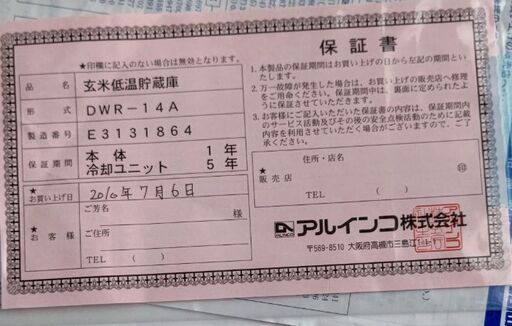 保証書
★印欄に記入のない場合は無効となります。
品名 玄米低温貯蔵庫
形式 DWR-14A
製造番号 E3131864
保証期間 本体 1年
冷却ユニット 5年
★お買い上げ日 2010年7月6日
★お客様 ご芳名 様
ご住所
TEL ( )
1.本製品の保証期間はお買い上げの日から左記の期間といたします。
2.万一故障が発生した場合は、お買い上げの販売店へ修理をご用命ください。保証期間中は、裏面に定められたように保証させていただきます。
3.お客様にご記入いただいた保証書の内容は、保証期間内のサービス活動及びその後の安全点検活動のために記載内容を利用させていただく場合がございますので、ご了承ください。
★販売店 住所・店名
印
TEL ( )
ALINCO アルインコ株式会社
〒569-8510 大阪府高槻市三島江